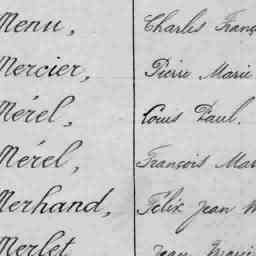 Menu, Charles Franç
Mercier, Pierre Marie
Mérel, Louis Paul.
Mérel, François Mar
Merhand, Félix Jean M
Merlet Jean Marie